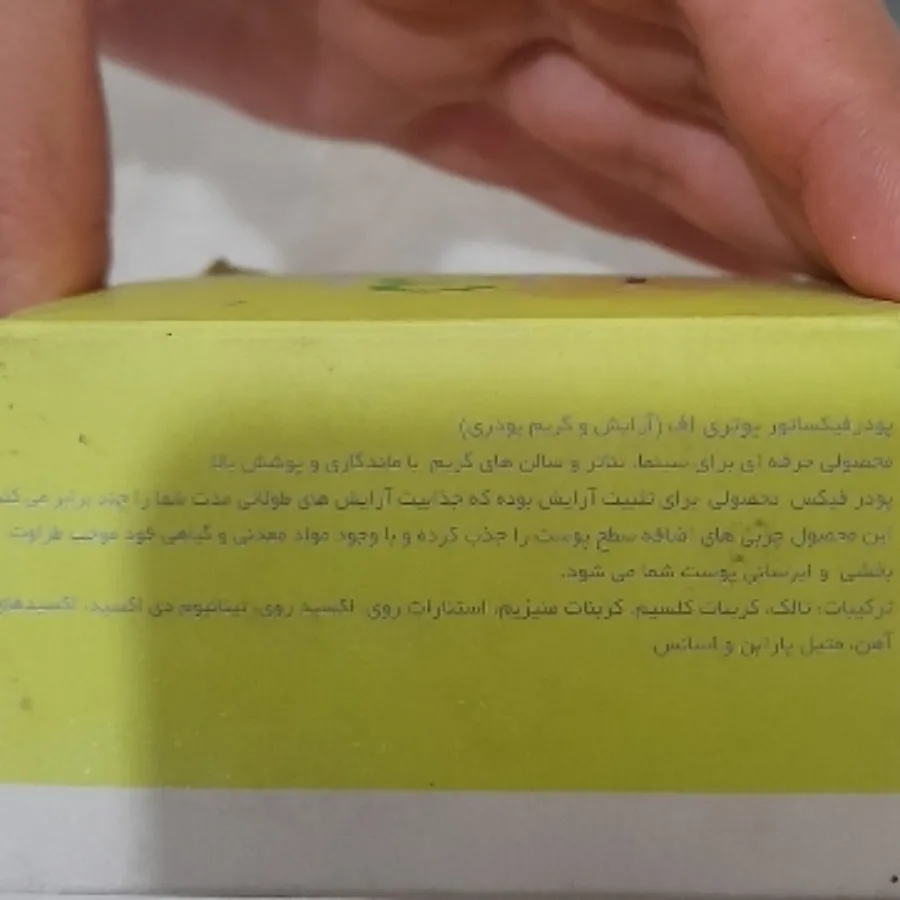 پودرفیکساتور بوتری اف (آرایش و گریم پودری)
محصولی حرفه ای برای سینما، تئاتر و سالن های گریم با ماندگاری و پوشش بالا
پودر فیکس محصولی برای تثبیت آرایش بوده که جذابیت آرایش های طولانی مدت شما را چند برابر می کند
این محصول چربی های اضافه سطح پوست را جذب کرده و با وجود مواد معدنی و گیاهی خود موجب طراوت
بخشی و ابرسانی پوست شما می شود.
ترکیبات: تالک، کربنات کلسیم، کربنات منیزیم، استئارات روی اکسید روی، تیتانیوم دی اکسید، اکسیدهای
آهن، متیل پارابن و اسانس